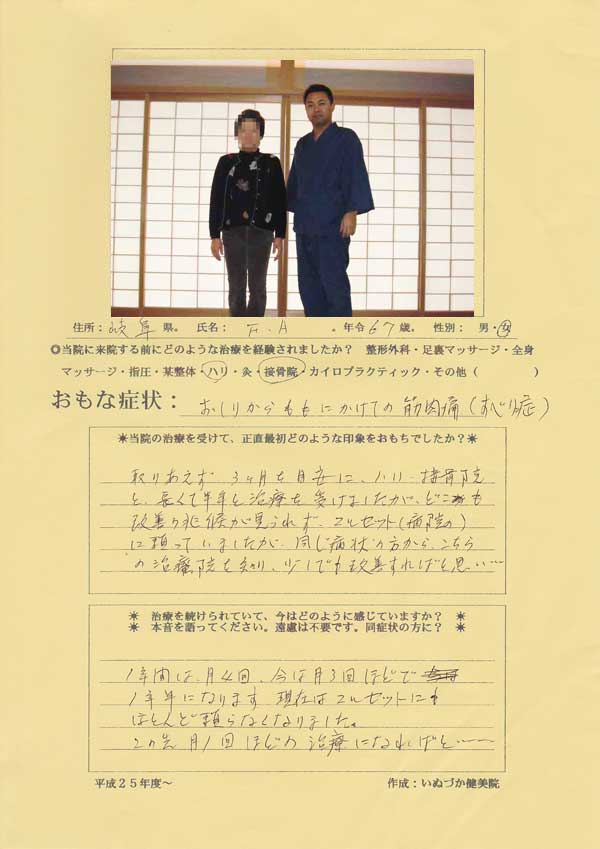 住所：岐阜 県。 氏名： F.A 。年令 67 歳。 性別： 男・女
◎当院に来院する前にどのような治療を経験されましたか？ 整形外科・足裏マッサージ・全身
マッサージ・指圧・某整体・ハリ・灸・接骨院・カイロプラクティック・その他（ ）
おもな症状： おしりからももにかけての筋肉痛（すべり症）
＊当院の治療を受けて、正直最初どのような印象をおもちでしたか？＊
取りあえず 3ヶ月を目安に、ハリ・接骨院
と、長くて半年と治療を受けましたが、どこも
改善の兆候が見られず、コルセット（病院の）
に頼っていましたが、同じ病状の方から、こちら
の治療院を知り、少しでも改善すればと思い……
＊ 治療を続けられていて、今はどのように感じていますか？ ＊
＊ 本音を語ってください。遠慮は不要です。同症状の方に？ ＊
1年間は、月4回、今は月3回ほどで
1年半になります 現在はコルセットにも
ほとんど頼らなくなりました。
2ヶ先 月1回ほどの治療になればと……
平成２５年度～ 作成：いぬづか健美院